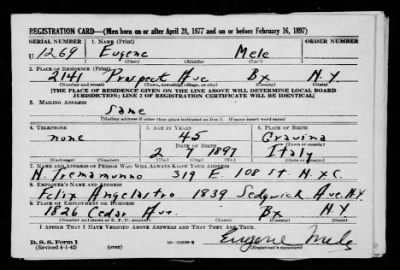 REGISTRATION CARD—(Men born on or after April 28, 1877 and on or before February 16, 1897)
SERIAL NUMBER 1. NAME (Print) ORDER NUMBER
U 1269 Eugene Mele
(First) (Middle) (Last)
2. PLACE OF RESIDENCE (Print)
2141 Prospect Ave Bx N.Y.
(Number and street) (Town, township, village, or city) (County) (State)
[THE PLACE OF RESIDENCE GIVEN ON THE LINE ABOVE WILL DETERMINE LOCAL BOARD
JURISDICTION; LINE 2 OF REGISTRATION CERTIFICATE WILL BE IDENTICAL]
3. MAILING ADDRESS
Same
[Mailing address if other than place indicated on line 2. If same insert word same]
4. TELEPHONE 5. AGE IN YEARS 6. PLACE OF BIRTH
none 45 Gravina
DATE OF BIRTH (Town or county)
2 7 1897 Italy
(Exchange) (Number) (Mo.) (Day) (Yr.) (State or country)
7. NAME AND ADDRESS OF PERSON WHO WILL ALWAYS KNOW YOUR ADDRESS
N. Tremamunno 319 E. 108 St. N.Y.C.
8. EMPLOYER'S NAME AND ADDRESS
Felix Angelastro 1839 Sedgwick Ave. N.Y.
9. PLACE OF EMPLOYMENT OR BUSINESS
1826 Cedar Ave. Bx N.Y.
(Number and street or R. F. D. number) (Town) (County) (State)
I AFFIRM THAT I HAVE VERIFIED ABOVE ANSWERS AND THAT THEY ARE TRUE.
D. S. S. Form 1
(Revised 4-1-42) Eugene Mele